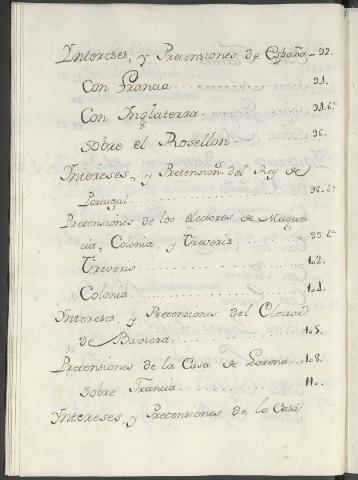 Intereses, y Pretensiones de España 92.
Con Francia 94.
Con Inglaterra 94.bta
Sobre el Rosellon 96.
Intereses, y Pretension.s del Rey de
Portugal 96.bta
Pretensiones de los electores de Magun
cia, Colonia, y Treveris 99.bta
Treveris 102.
Colonia 104.
Intereses, y Pretensiones del Elector
de Baviera 105.
Pretensiones de la Casa de Lorena 108.
Sobre Francia 110.
Intereses, y Pretensiones de la Casa